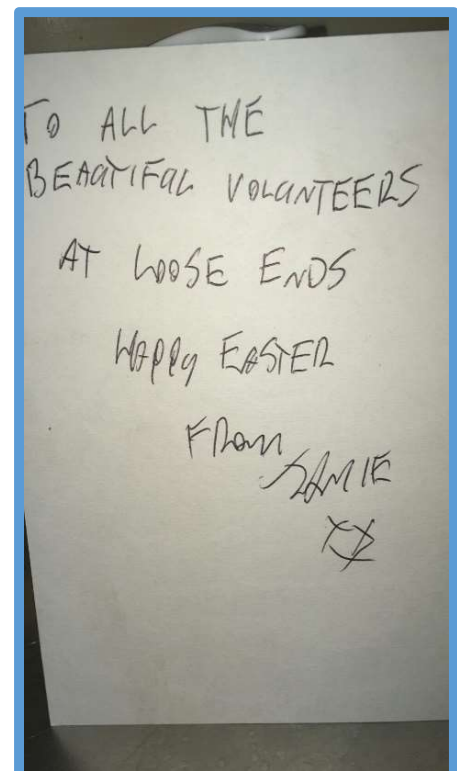 TO ALL THE
BEAUTIFUL VOLUNTEERS
AT LOOSE ENDS
HAPPY EASTER
FROM
JAMIE
XX